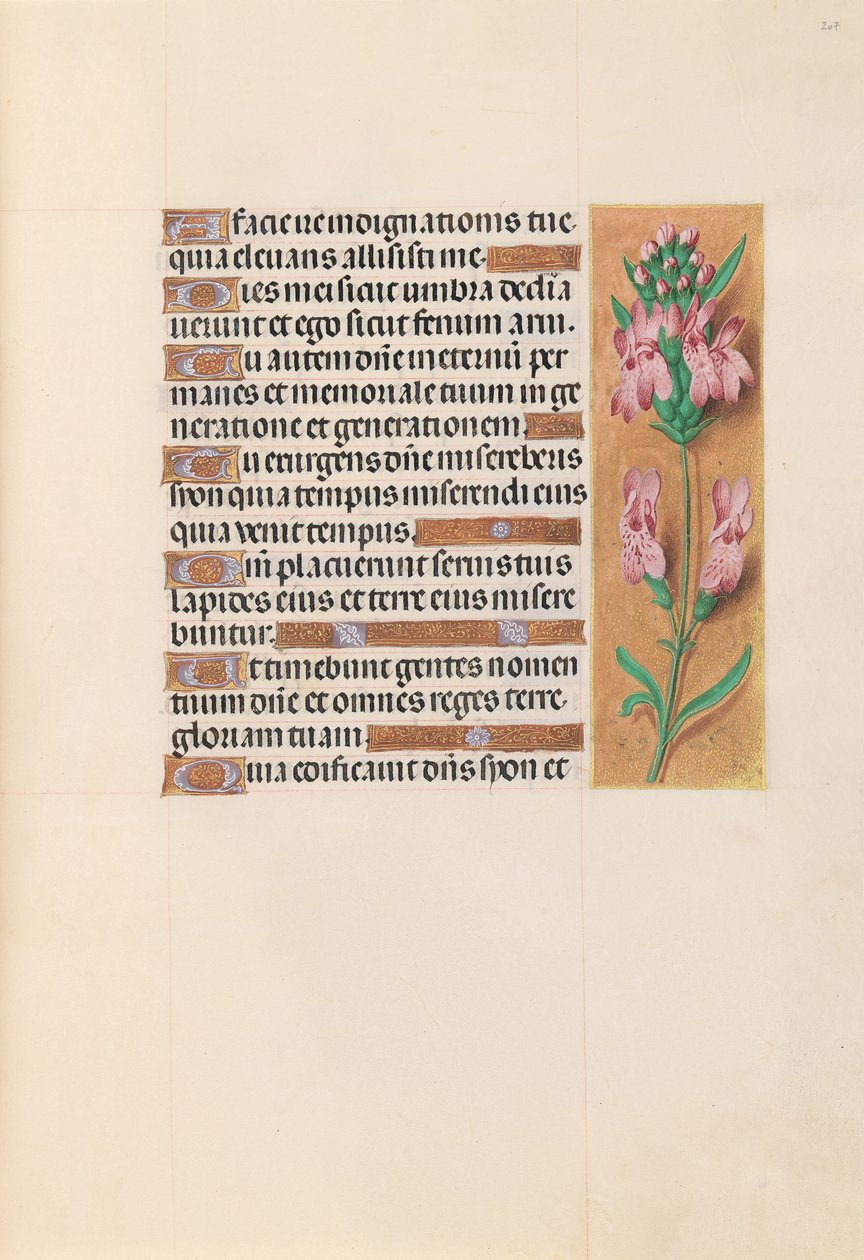 207
A facie ire indignationis tue
quia elevans allisisti me.
Dies mei sicut umbra declina
verunt et ego sicut fenum arui.
Tu autem dñe in eternũ per
manes et memoriale tuum in ge
neratione et generationem.
Tu exurgens dñe misereberis
syon quia tempus miserendi eius
quia venit tempus.
Qm̃ placuerunt servis tuis
lapides eius et terre eius misere
buntur.
Et timebunt gentes nomen
tuum dñe et omnes reges terre
gloriam tuam.
Quia edificavit dñs syon et